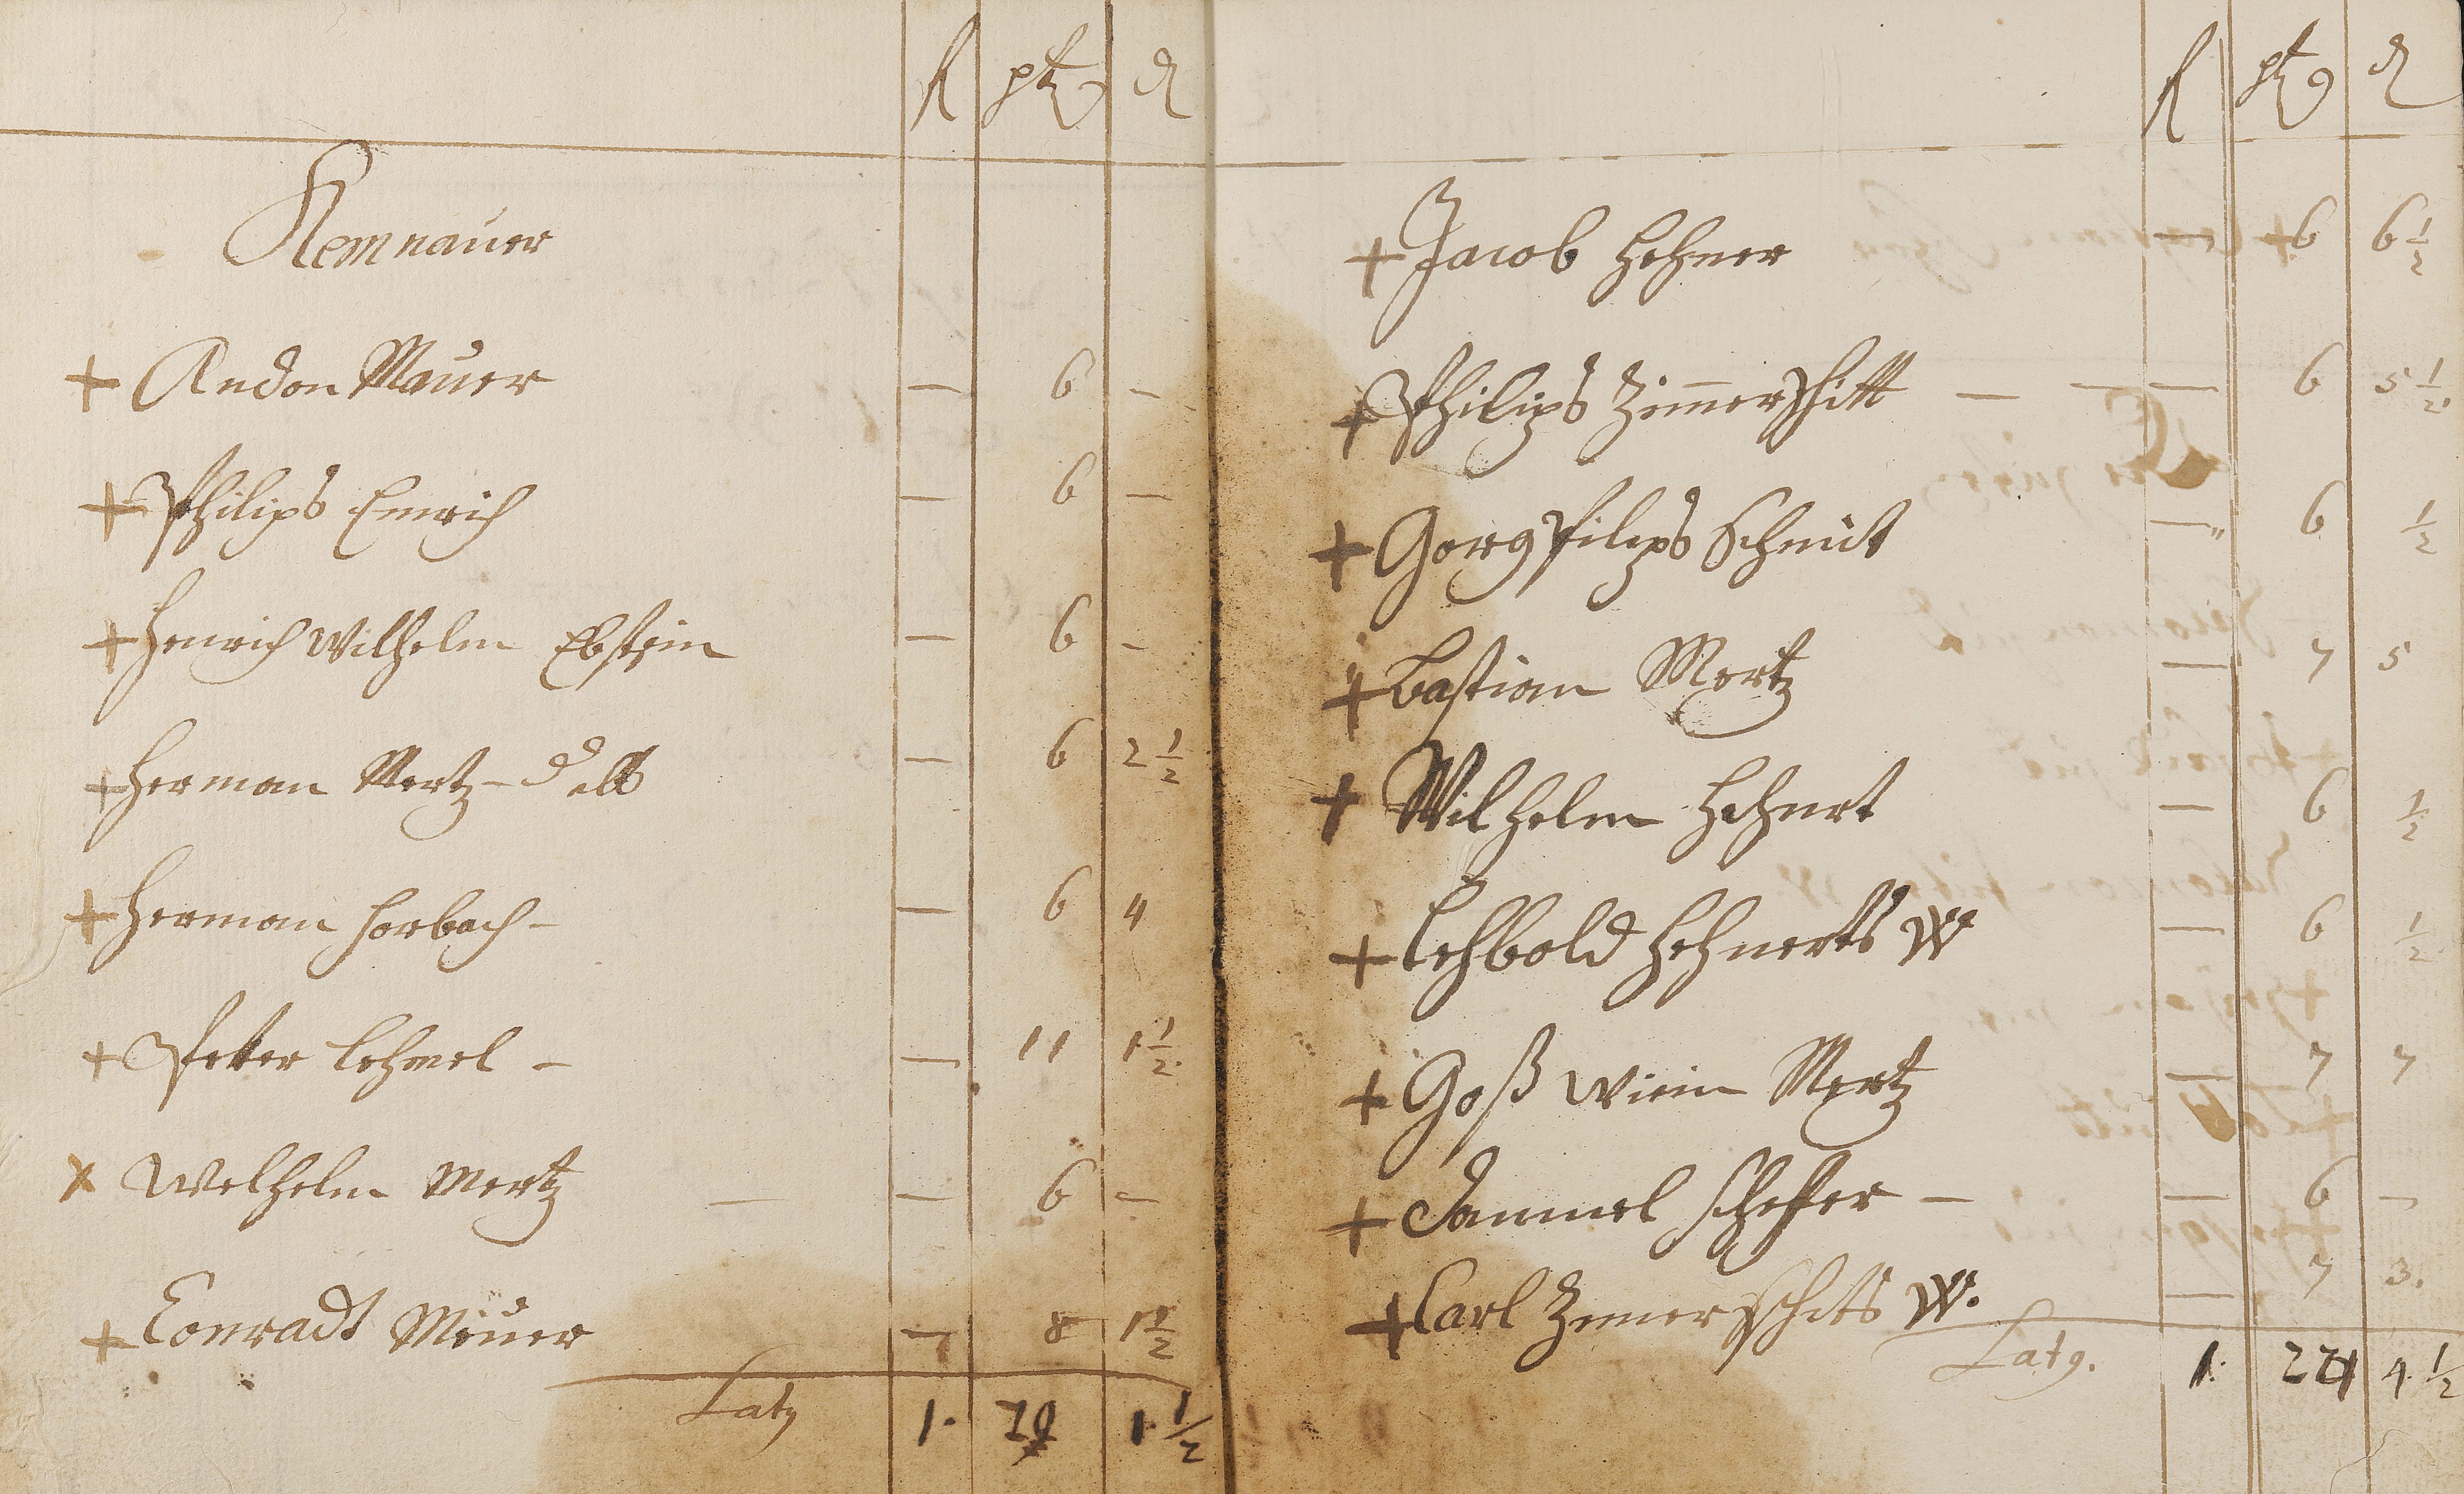 fl ptz d
Kemnauer
+ Andon Mauer — 6 —
+ Philips Emrich — 6 —
+ Henrich Wilhelm Ebstein — 6 —
+ Herman Mertz - — 6 2 1/2
+ Herman Horbach - — 6 4
+ Peter Lehmel - — 11 1 1/2
x Welhelm Mertz — — 6 —
+ Conradt Meuer — 8 1 1/2
Latg 1. 1 1/2
fl ptz d
+ Jacob Hehner — 6 6 1/2
+ Philips Zimmerschitt — — — 6 5 1/2
+ Gorg Filips Schmit — 6 1/2
+ Bastian Mertz — 7 5
+ Wilhelm Hehnert — 6 1/2
+ Lehbold Hehnerts W — 6 1/2
+ Goß wiin Mertz — 7 7
+ Sammel scheffer — — 6 —
+ Carl Zimerschits W. — 7 3.
Latg. 1. 4 1/2